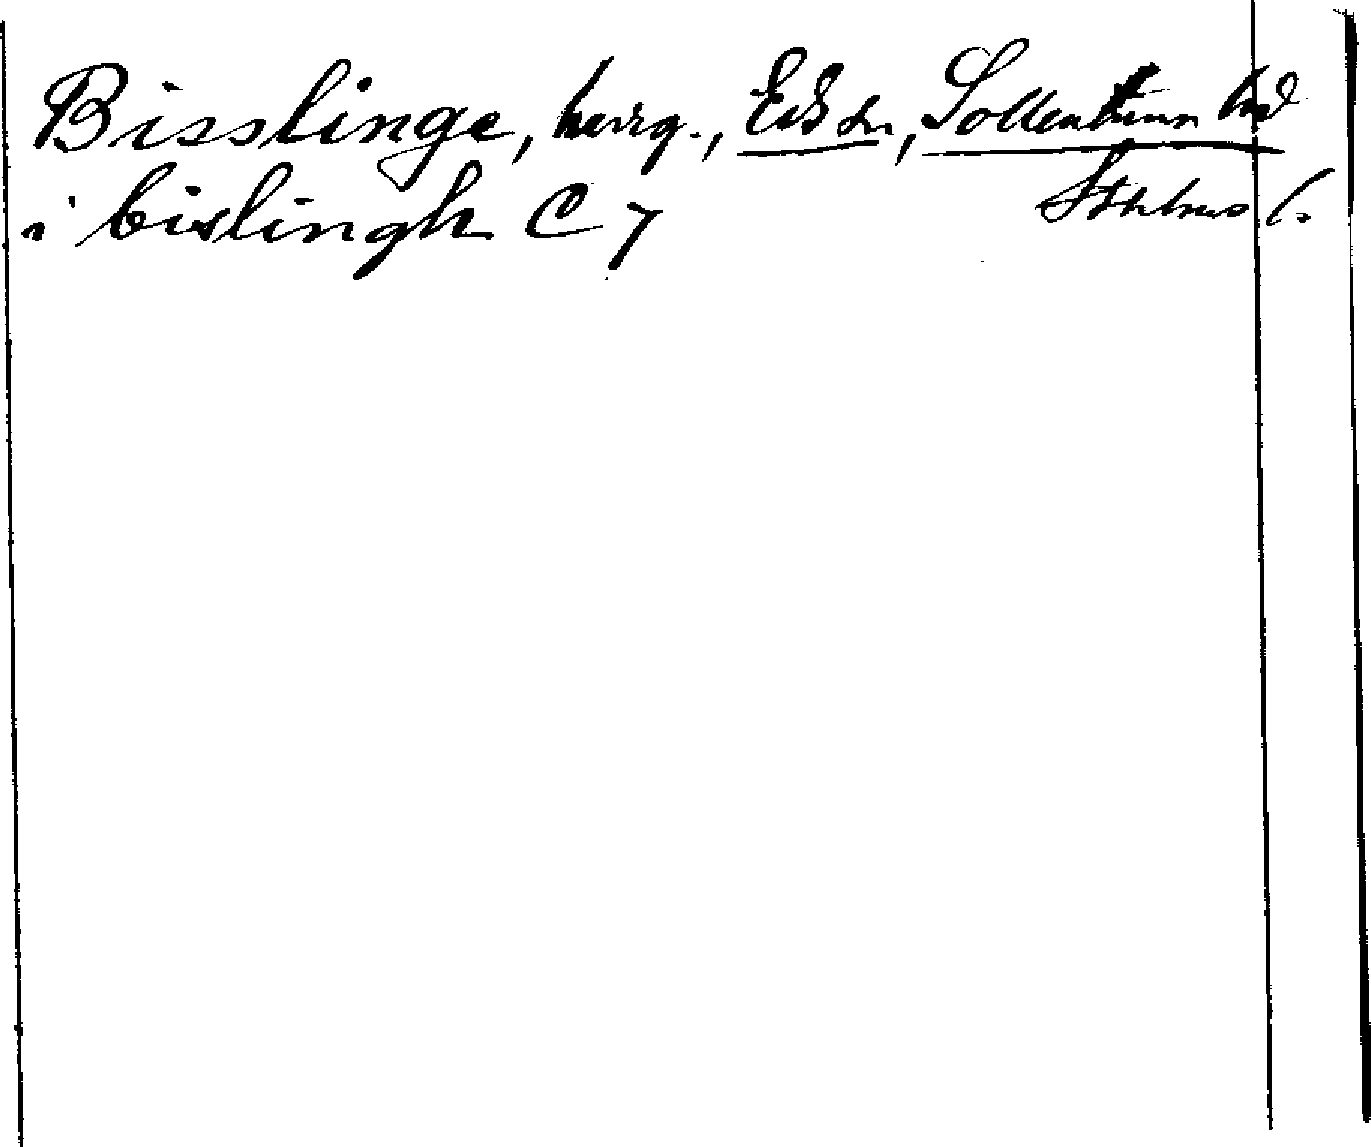 Bisslinge, herrg., Eds sn, Sollentuna hd
i bislingh C 7 Sthlms l.